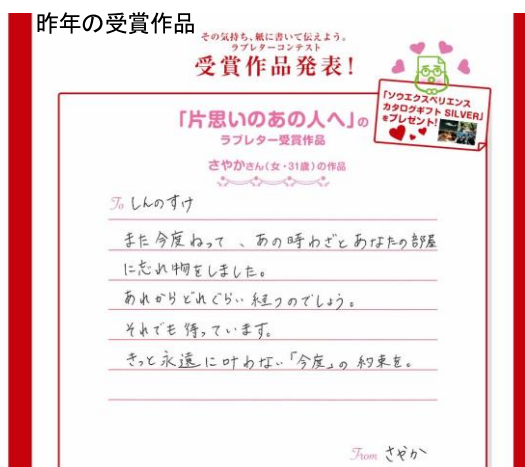 昨年の受賞作品
その気持ち、紙に書いて伝えよう。
ラブレターコンテスト
受賞作品発表!
「ソウエクスペリエンス
カタログギフト SILVER」
をプレゼント!
「片思いのあの人へ」の
ラブレター受賞作品
さやかさん(女・31歳)の作品
To しんのすけ
また今度ねって、あの時わざとあなたの部屋
に忘れ物をしました。
あれからどれぐらい経つのでしょう。
それでも待っています。
きっと永遠に叶わない「今度」の約束を。
From さやか